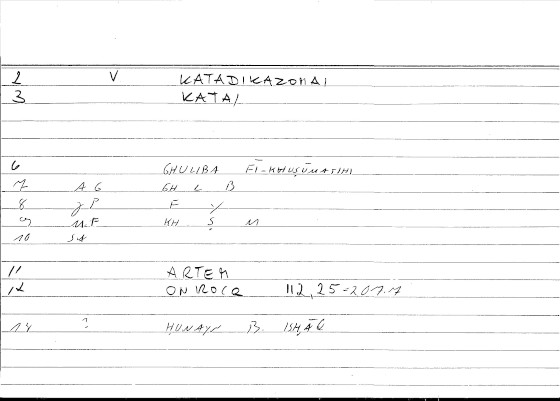 2 V KATADIKAZOMAI
3 KATA/
6 GHULIBA FĪ-KHUṢŪMATIHI
7 AG GH L B
8 gP F Y
9 M.F KH Ṣ M
10 SA
11 ARTEM
12 ONIROCR 112,25=201.7
14 ? ḤUNAYN B. ISḤĀQ